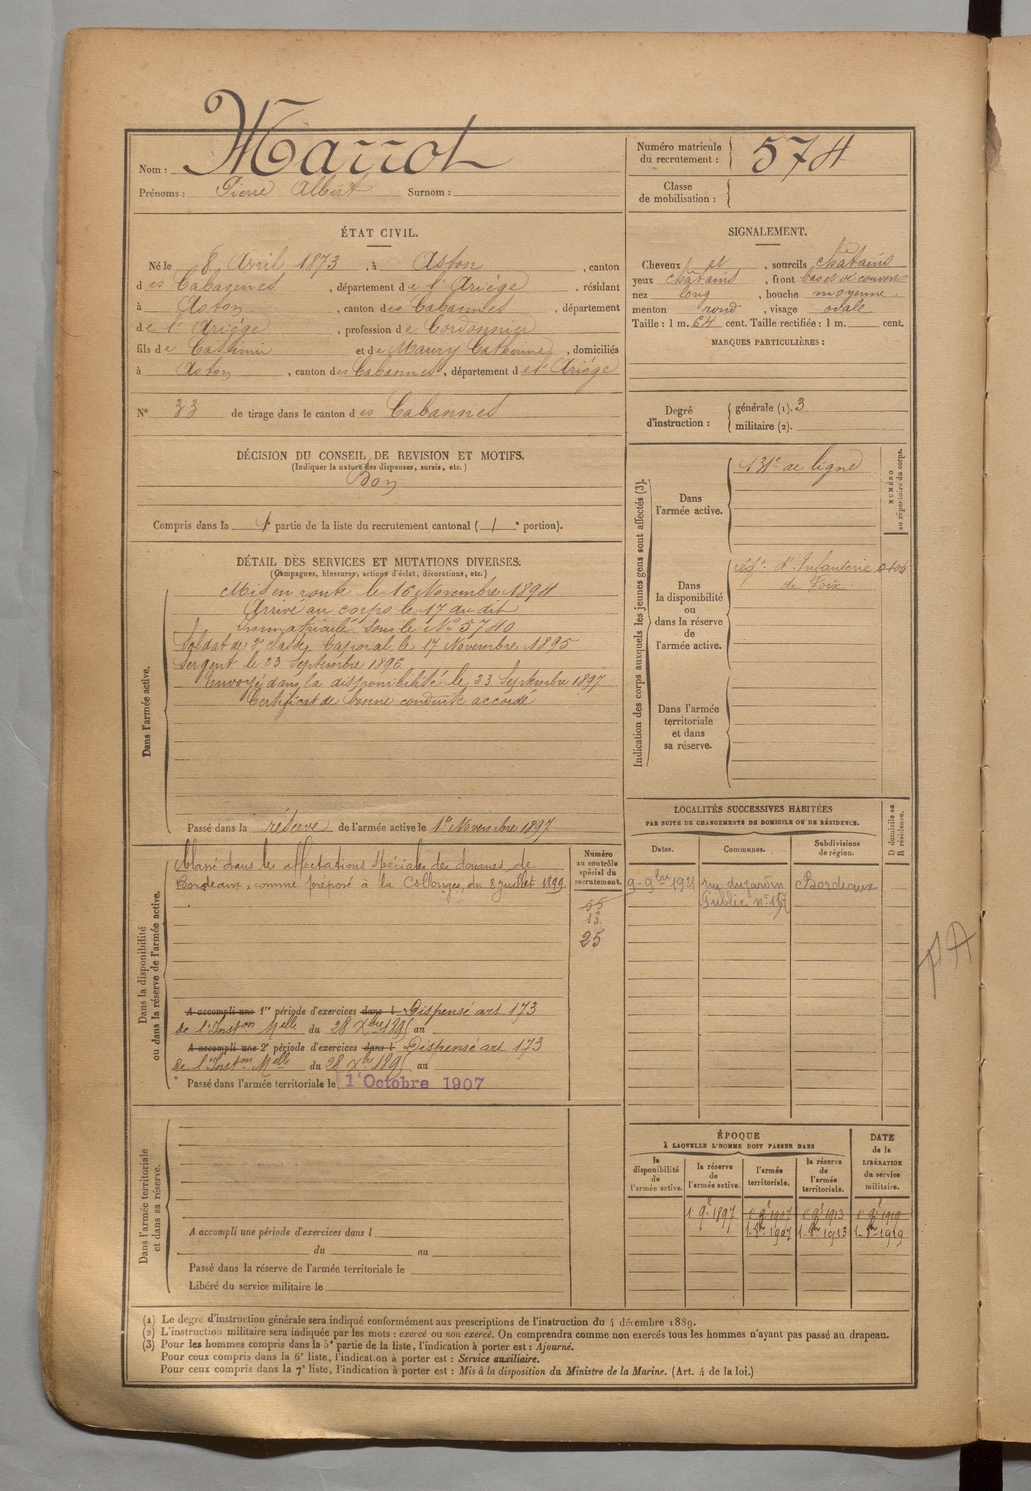 Nom : Marrot
Prénoms : Pierre Albert Surnom :
Numéro matricule du recrutement : 574
Classe de mobilisation :
ÉTAT CIVIL.
Né le 8 Avril 1873, à Aston, canton
des Cabannes, département de l'Ariége, résidant
à Aston, canton des Cabannes, département
de l'Ariége, profession de Cordonnier
fils de Cassimir et de Maury Catherine, domiciliés
à Aston, canton des Cabannes, département de l'Ariége
N° 33 de tirage dans le canton des Cabannes
SIGNALEMENT.
Cheveux et, sourcils châtains
yeux châtains, front bas et découvert
nez long, bouche moyenne
menton rond, visage ovale
Taille : 1 m. 64 cent. Taille rectifiée : 1 m. cent.
MARQUES PARTICULIÈRES :
Degré d'instruction : générale (1). 3
militaire (2).
DÉCISION DU CONSEIL DE REVISION ET MOTIFS.
(Indiquer la nature des dispenses, sursis, etc.)
Bon
Compris dans la 1e partie de la liste du recrutement cantonal ( 1 e portion).
DÉTAIL DES SERVICES ET MUTATIONS DIVERSES.
(Campagnes, blessures, actions d'éclat, décorations, etc.)
Dans l'armée active.
Mis en route le 16 Novembre 1894
Arrivé au corps le 17 du dit
Immatriculé sous le No 5740
Soldat de 2e classe, Caporal le 17 Novembre 1895
Sergent le 23 Septembre 1896
Envoyé dans la disponibilité le 23 Septembre 1897
Certificat de bonne conduite accordé
Passé dans la réserve de l'armée active le 1er Novembre 1897
Indication des corps auxquels les jeunes gens sont affectés (3).
NUMÉRO au répertoire du corps.
Dans l'armée active.
131e de ligne
Dans la disponibilité ou dans la réserve de l'armée active.
régt d'Infanterie
de Foix
Dans l'armée territoriale et dans sa réserve.
Dans la disponibilité ou dans la réserve de l'armée active.
Classé dans les affectations spéciales des douanes de
Bordeaux, comme préposé à la Collonges, du 8 juillet 1899
Numéro au contrôle spécial du recrutement.
55
13
25
A accompli une 1re période d'exercices dans l Dispensé art 173
de l'Inston Melle du 28 Xbre 1895 au
A accompli une 2e période d'exercices dans l Dispensé art 173
de l'Inston Melle du 28 Xbre 1895 au
Passé dans l'armée territoriale le 1er Octobre 1907
LOCALITÉS SUCCESSIVES HABITÉES
PAR SUITE DE CHANGEMENTS DE DOMICILE OU DE RÉSIDENCE.
Dates. Communes. Subdivisions de région. D domicile ou R résidence.
9-9bre 1921 rue du jardin Bordeaux
Public n° 157
PA
Dans l'armée territoriale et dans sa réserve.
A accompli une période d'exercices dans l
du au
Passé dans la réserve de l'armée territoriale le
Libéré du service militaire le
ÉPOQUE
À LAQUELLE L'HOMME DOIT PASSER DANS
DATE de la LIBÉRATION du service militaire.
la disponibilité de l'armée active. la réserve de l'armée active. l'armée territoriale. la réserve de l'armée territoriale.
1 9e 1897 1 9e 1907 1 9e 1913 1 9e 1919
1. 8bre 1907 1. 8bre 1913 1. 8bre 1919
(1) Le degré d'instruction générale sera indiqué conformément aux prescriptions de l'instruction du 4 décembre 1889.
(2) L'instruction militaire sera indiquée par les mots : exercé ou non exercé. On comprendra comme non exercés tous les hommes n'ayant pas passé au drapeau.
(3) Pour les hommes compris dans la 5e partie de la liste, l'indication à porter est : Ajourné.
Pour ceux compris dans la 6e liste, l'indication à porter est : Service auxiliaire.
Pour ceux compris dans la 7e liste, l'indication à porter est : Mis à la disposition du Ministre de la Marine. (Art. 4 de la loi.)